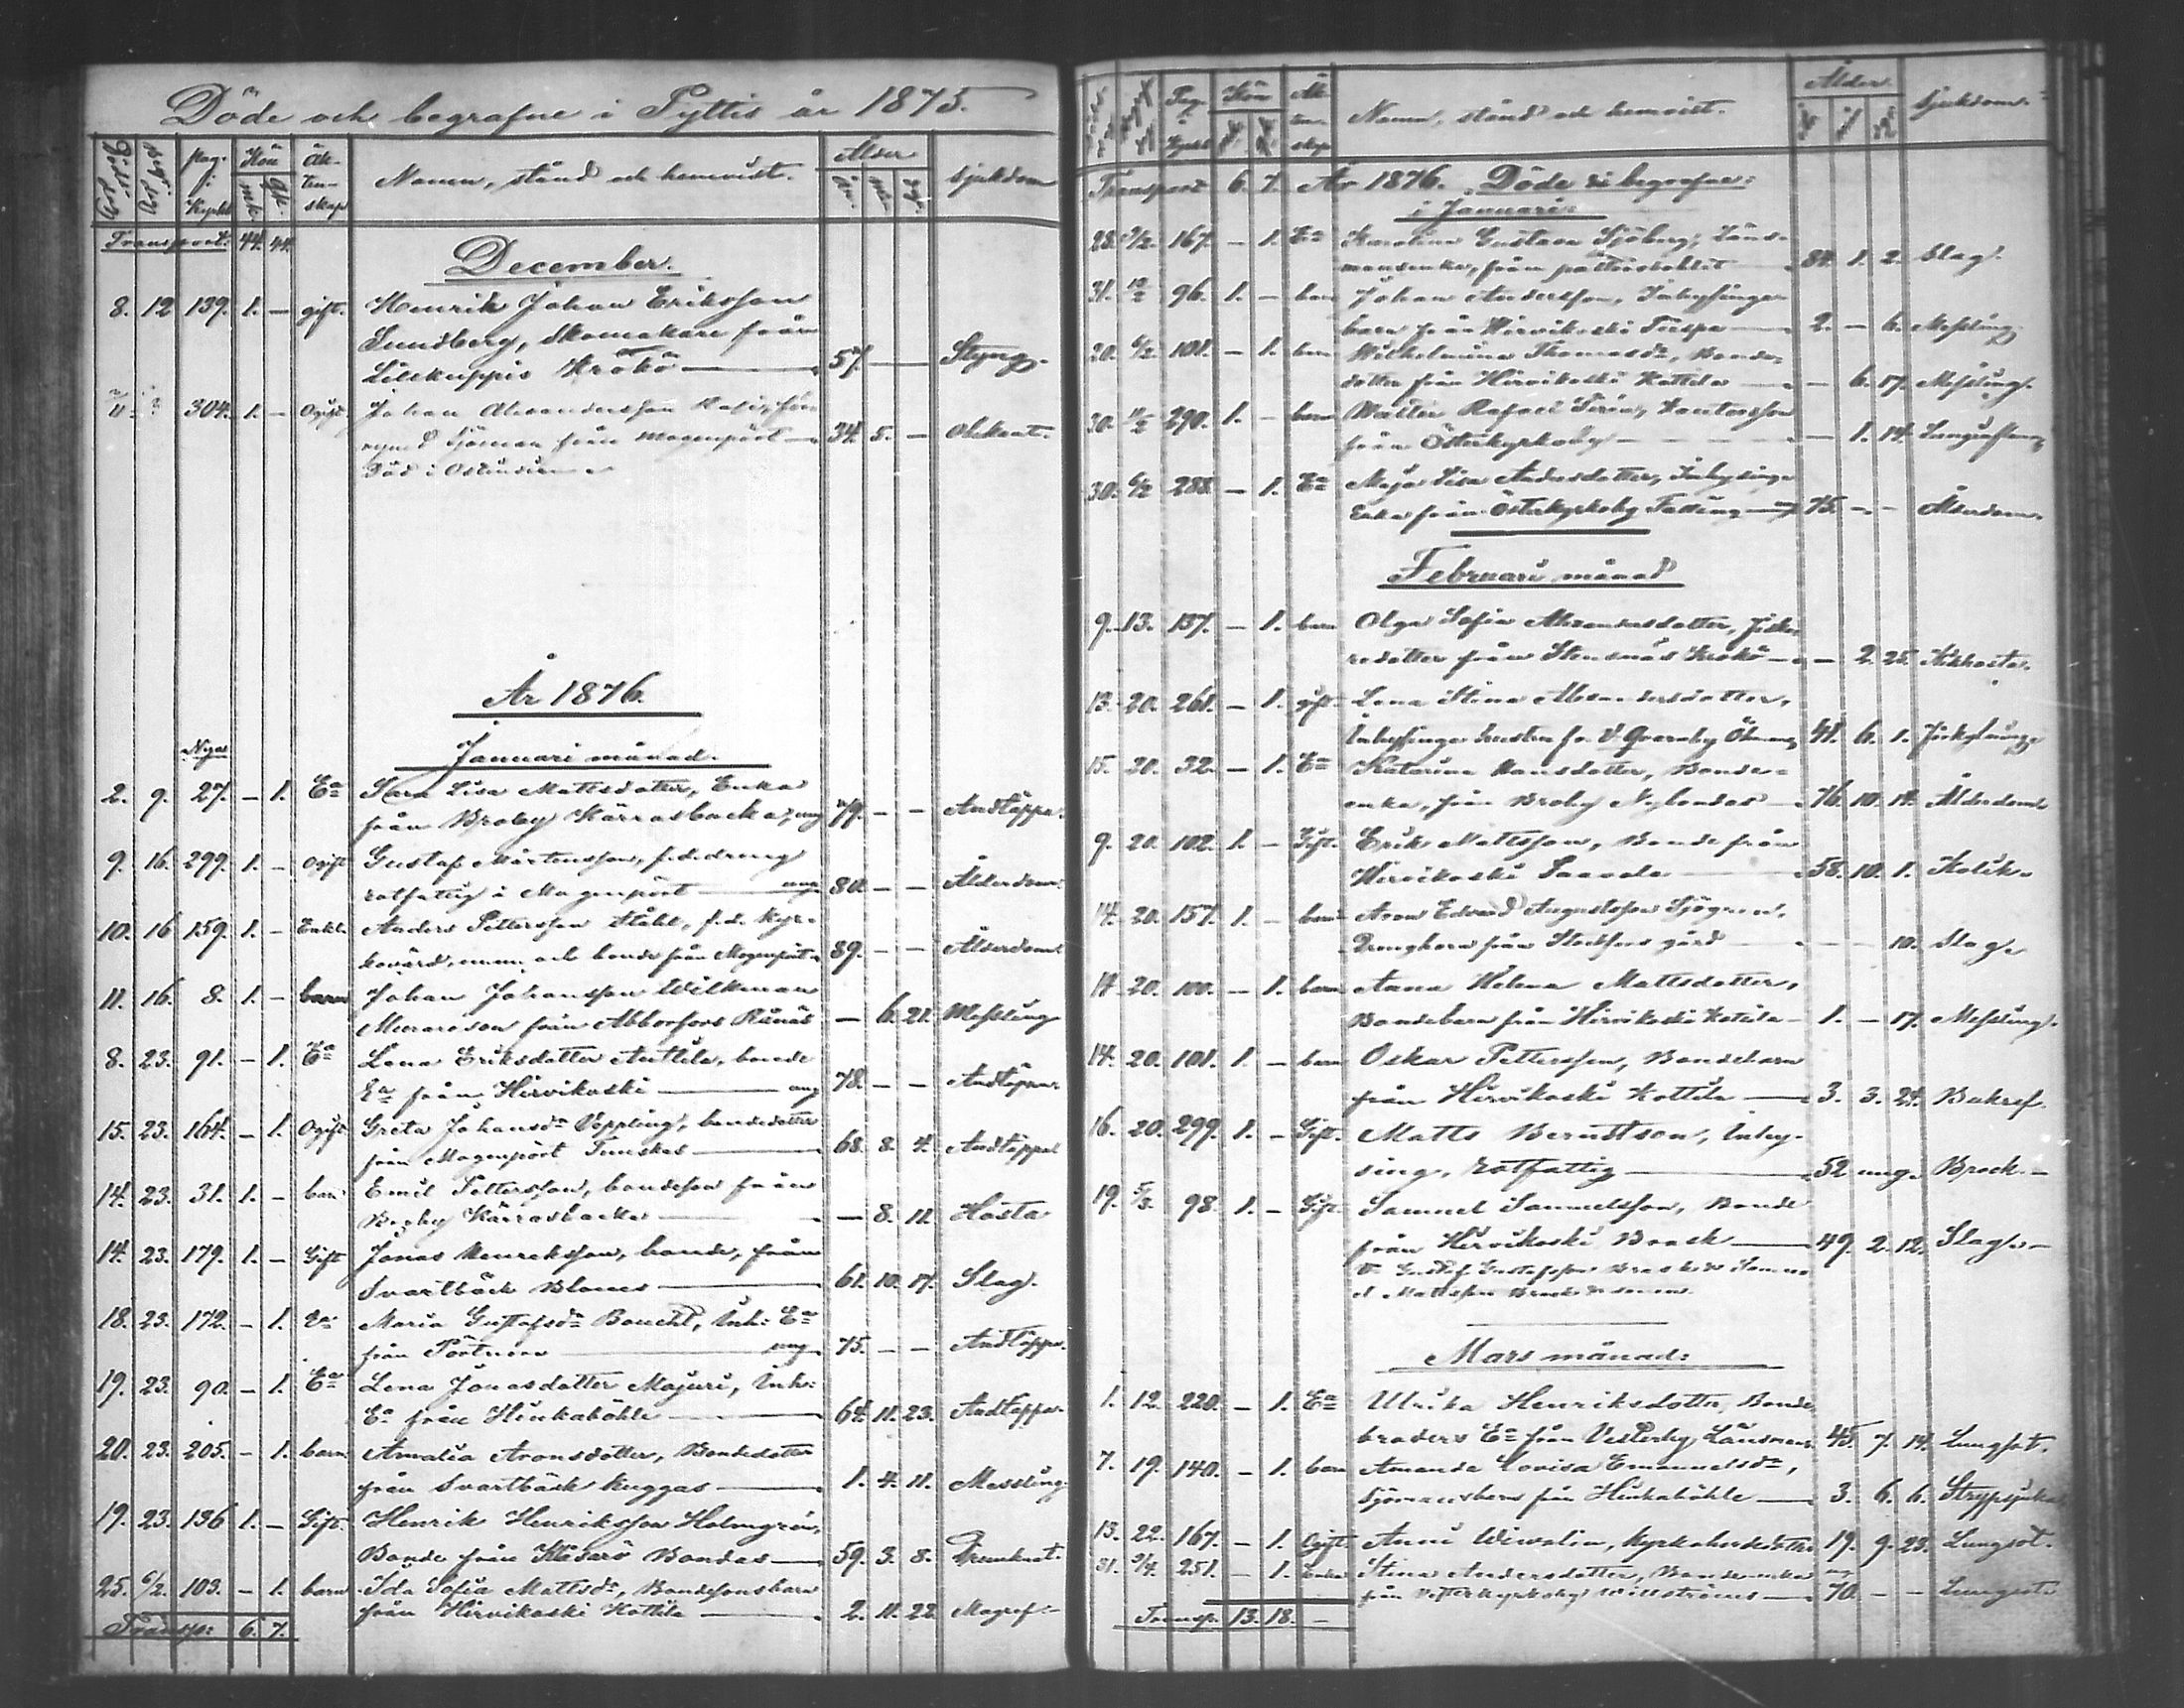 Döde och begrafne i Pyttis år 1875.
Döds dag Begr. dag Pag. i Kyrkb. Kön mk. qk. Äktenskap Namn, stånd och hemvist. Ålder år. mån. dag. sjukdom
Transport: 44. 44.
December.
8. 12 139. 1. — gift. Henrik Johan Eriksson
Sundberg, Skomakare från
Lillkuppis Krökö — 57. — Styng.
304. 1. — Ogift Johan Alexandersson
Sjöman från Mogenpört — 34. 5. — Obekant.
Död i Ostindien
År 1876.
Januari månad.
Nya
2. 9. 27. — 1. Ea Sara Lisa Mattsdotter, Enka
från Broby Kärrasbacka, ung 79. — — Andtäppa.
9. 16. 299. 1. — Ogift Gustaf Mårtensson, f.d. dreng
rotfattig i Mogenpört — ung 80. — — Ålderdom.
10. 16 159. 1. — Enkl. Anders Pettersson Ståhl, f.d. kyr-
kovärd, och bonde från Mogenpört 89. — — Ålderdom
11. 16. 8. 1. — barn Johan Johansson Wilkman
Murareson från Abborfors Rånäs — 6. 21. Messling
8. 23. 91. — 1. Ea Lena Eriksdotter Anttila, bonde
Ea från Hirvikoski — ung 78. — — Andtäppa.
15. 23. 164. — 1. Ogift Greta Johansdr Veppling, bondedotter
från Mogenpört Tunskas — 68. 8. 4. Andtäppa
14. 23. 31. 1. — barn Emil Pettersson, bondeson från
Broby Kärrasbacka — — 8. 11. Hosta
14. 23. 179. 1. — Gift Jonas Henriksson, bonde, från
Svartbäck Bloms — 61. 10. 17. Slag.
18. 23. 172. — 1. Ea Maria Gustafsdr Baucht, Inh: Ea
från Pörtnoro — ung 75. — — Andtäppa.
19. 23. 90. — 1. Ea Lena Jonasdotter Majuri, Inh:
Ea från Hinkaböhle — 64. 11. 23. Andtäppa.
20. 23. 205. — 1. barn Amalia Aronsdotter, Bondedotter
från Svartbäck Kuggas — 1. 4. 11. Messling
19. 23. 136 1. — Gift. Henrik Henriksson Holmgrén,
Bonde från Kläsarö Bondas — 59. 3. 8. Drunknat.
25. 6/2. 103. — 1. barn Ida Sofia Mattsdr, Bondesonsbarn
från Hirvikoski Kottila — 2. 11. 22. Magref.
Transp: 6. 7.
Pag. i Kyrkb. Kön Äktenskap Namn, stånd och hemvist. Ålder Sjukdom
Transport 6. 7. År 1876. Döde och begrafne:
i Januari
28. 167. — 1. Ea Karolina Gustava Sjöberg, Läns-
mansenka, från 84. 1. 2. Slag.
31. 96. 1. — barn Johan Andersson, Inhysinge
barn från Hirvikoski Torpa — 2. — 6. Messling.
20. 6/2. 101. — 1. barn Wilhelmina Thomasdr, Bonde-
dotter från Hirvikoski Kottila — — 6. 17. Messling.
30. 290. 1. — barn Walter Rafael Forén, Kantorsson
från Österkyrkoby — — 1. 14.
30. 6/2 288. — 1. Ea Maja Lisa Andersdotter, Inhysinge
Enka från Österkyrkoby Tassing — ung 75. — — Ålderdom.
Februari månad
9. 13. 137. — 1. barn Olga Sofia Alexandersdotter, Fiska-
redotter från Stensnäs Krökö — — 2. 25. Kikhosta.
13. 20. 261. — 1. gift. Lena Stina Alexandersdotter,
Inhysinge hustru fr. V. Qvarnby Öhmans 41. 6. 1.
15. 20. 32. — 1. Ea Katarina Hansdotter, Bonde-
enka, från Broby Nybondas — 76. 10. 14. Ålderdom
9. 20. 102. 1. — Gift. Erik Mattsson, Bonde från
Hirvikoski Saavola — 58. 10. 1. Kolik.
14. 20. 157. 1. — barn Aron Edvard Augustsson Sjögren,
Drengbarn från Stockfors gård — — — 10. Slag.
14. 20. 100. — 1. barn Anna Helena Mattsdotter,
Bondebarn från Hirvikoski Kottila — 1. — 17. Messling.
14. 20. 101. 1. — barn Oskar Pettersson, Bondebarn
från Hirvikoski Kottila — 3. 3. 24. Bukref.
16. 20. 299. 1. — Gift. Matts Berndtson, Inhy-
sing, rotfattig — 52 ung. Brock.
19. 5/3. 98. 1. — Gift Samuel Samuelsson, Bonde
från Hirvikoski Brask — 49. 2. 12. Slag.
Mars månad:
1. 12. 220. — 1. Ea Ulrika Henriksdotter, Bonde
broders Ea från Vesterby Länsmans 45. 7. 14. Lungsot.
7. 19. 140. — 1. barn Amanda Lovisa Emanuelsdr,
Sjömansbarn från Hinkaböhle — 3. 6. 6. Strypsjuka
13. 22. 167. — 1. Ogift Anni Wirvalin, Kyrkoherdedotter 19. 9. 23. Lungsot.
31. 9/4. 251. — 1. Enka Stina Andersdotter, Bonde-enka ung
från Vesterkyrkoby Willströms — 70. — — Lungsot.
Transp. 13. 18. —